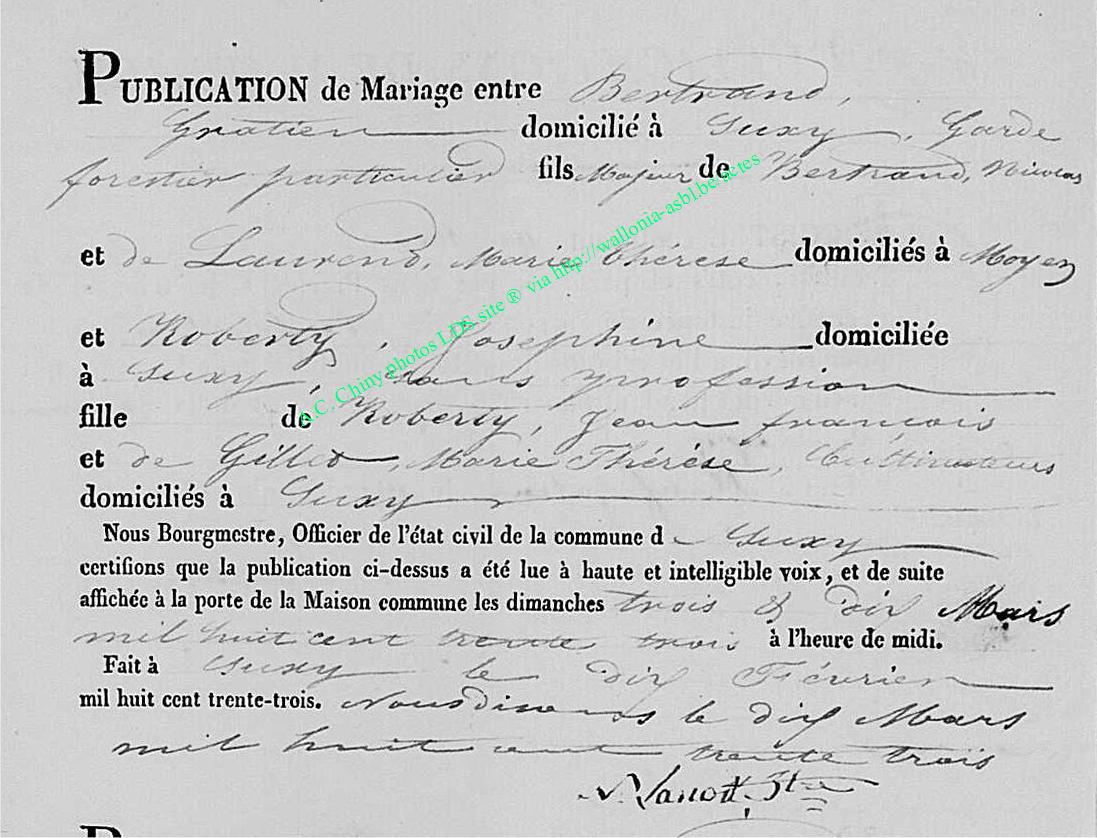 PUBLICATION de Mariage entre Bertrand,
Gratien domicilié à Suxy, Garde
forestier particulier fils Majeur de Bertrand, Nicolas
et de Laurend, Marie Thérèse domiciliés à Moyen
et Roberty, Josephine domiciliée
à Suxy, sans profession
fille de Roberty, Jean françois
et de Gillet, Marie Thérèse, Cultivateurs
domiciliés à Suxy
Nous Bourgmestre, Officier de l'état civil de la commune de Suxy
certifions que la publication ci-dessus a été lue à haute et intelligible voix, et de suite
affichée à la porte de la Maison commune les dimanches trois & dix Mars
mil huit cent trente trois à l'heure de midi.
Fait à Suxy le dix Février
mil huit cent trente-trois. Nous disons le dix Mars
mil huit cent trente trois
A.C. Chiny photos LDS site ® via http://wallonia-asbl.be/actes
P